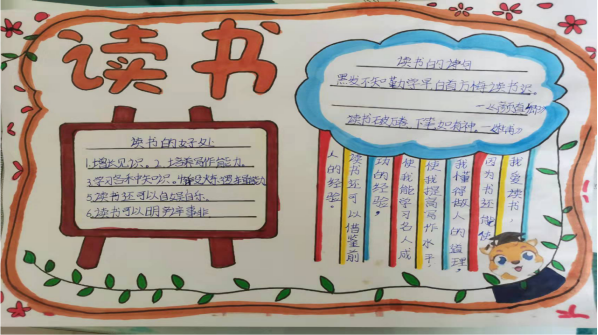 读书
读书的好处
1.增长见识。2.培养写作能力。
3.学习各种知识。4.
5.读书还可以自娱自乐
6.读书可以明辨事非
读书的诗句
黑发不知勤学早白首方悔读书迟。
读书破万卷,下笔如有神,
我爱读书,
因为书还能使
我懂得做人的道理,
使我提高写作水平。
使我能学习名人成
功的经验,
读书还可以借鉴前
人的经验。